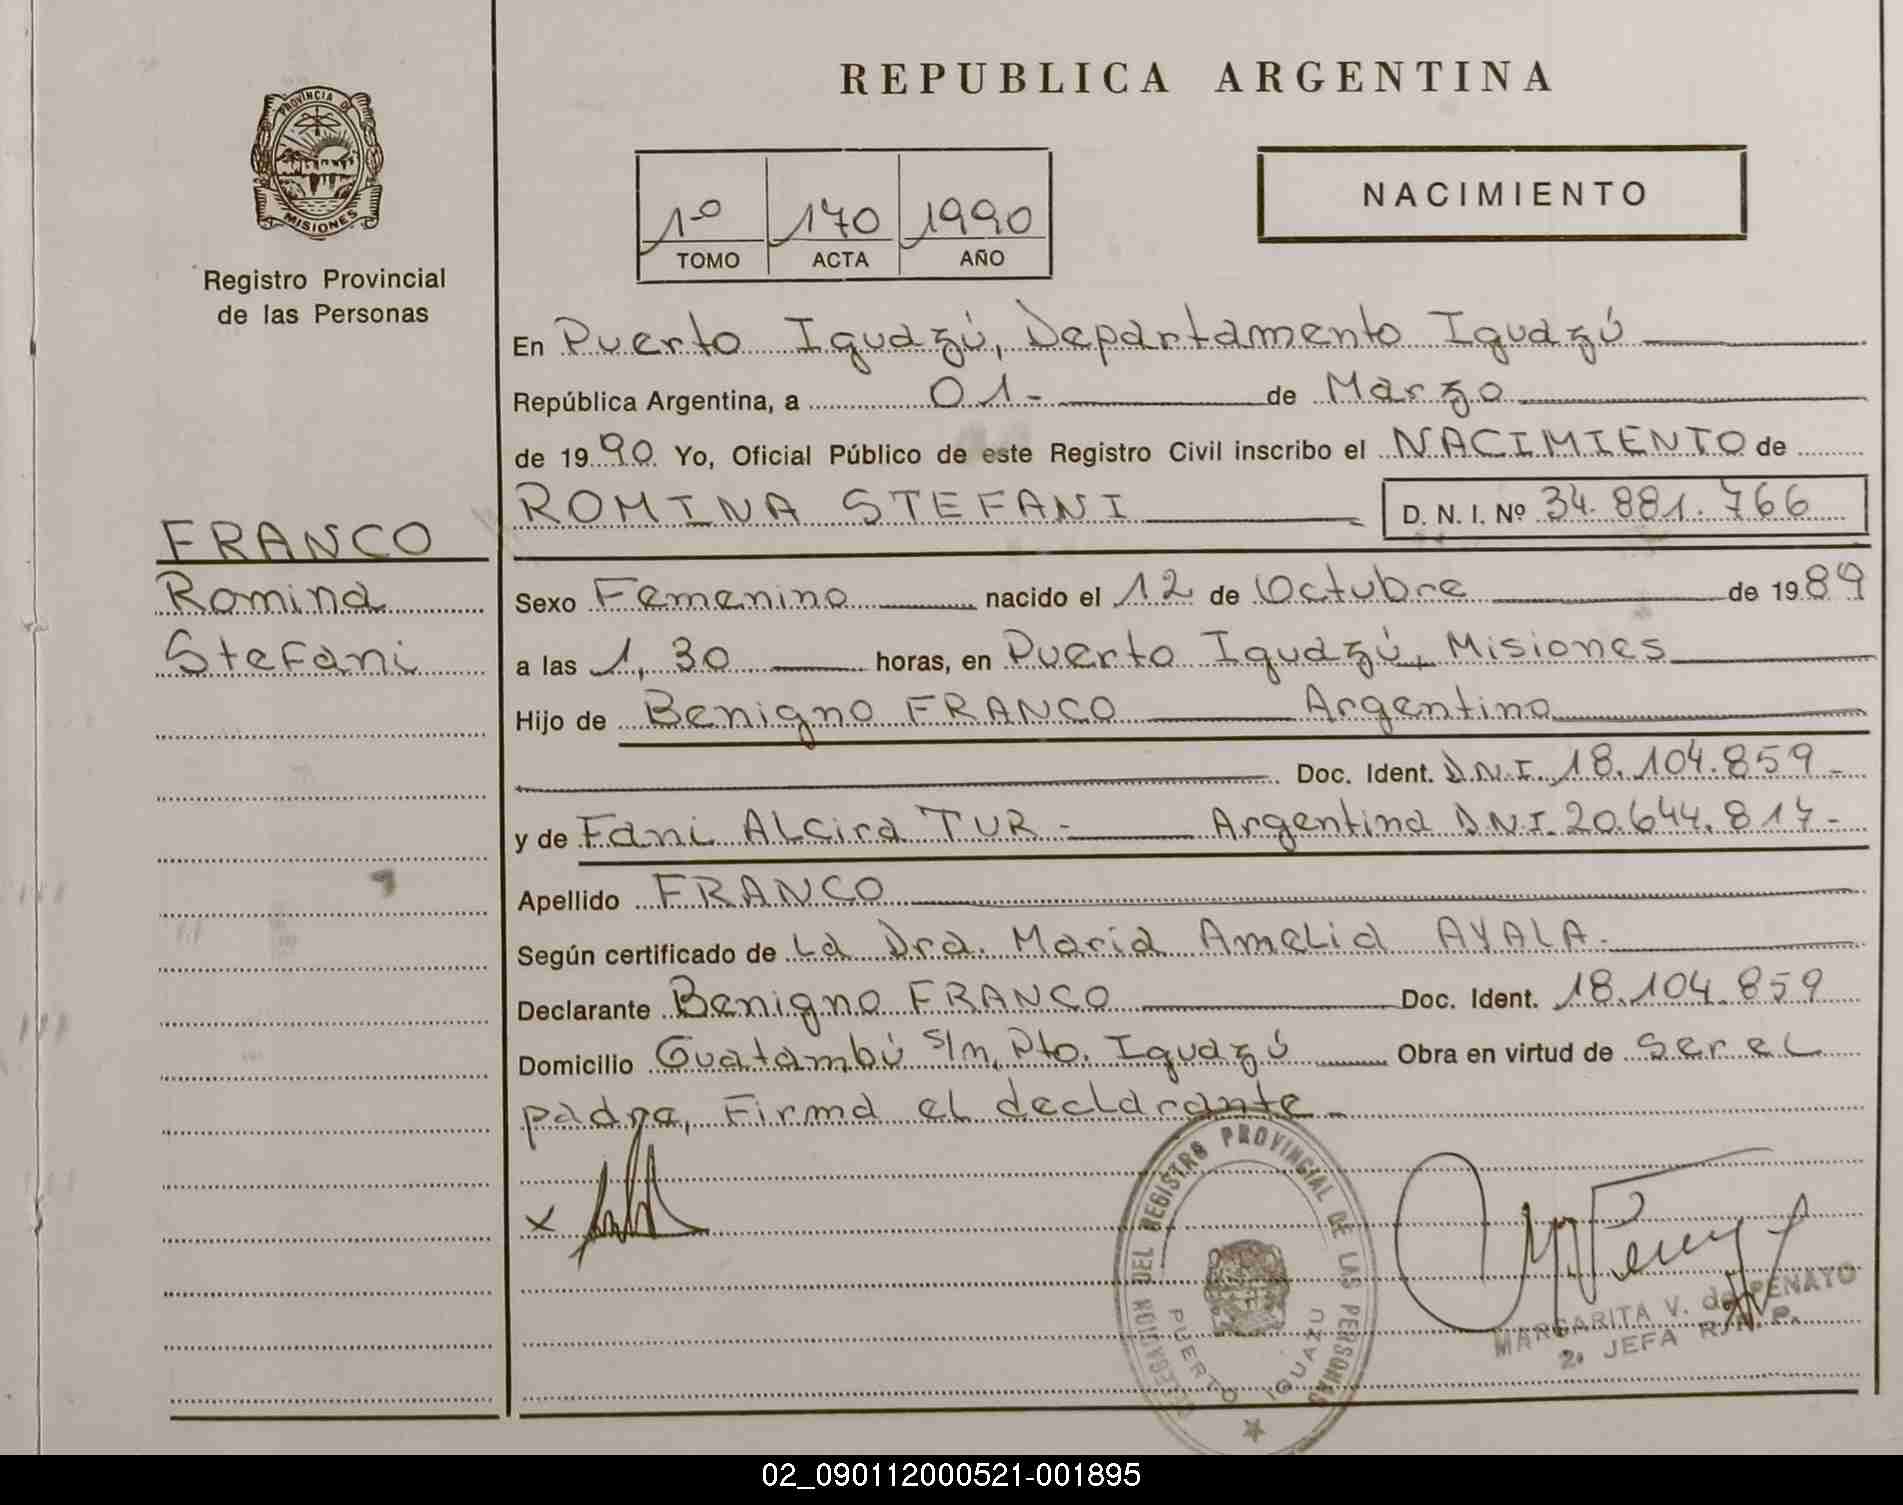 REPUBLICA ARGENTINA
PROVINCIA DE
MISIONES
Registro Provincial
de las Personas
1º 170 1990
TOMO ACTA AÑO
NACIMIENTO
FRANCO
Romina
Stefani
En Puerto Iguazú, Departamento Iguazú
República Argentina, a 01- de Marzo
de 1990 Yo, Oficial Público de este Registro Civil inscribo el NACIMIENTO de
ROMINA STEFANI D. N. I. Nº 34.881.766
Sexo Femenino nacido el 12 de Octubre de 1989
a las 1,30 horas, en Puerto Iguazú, Misiones
Hijo de Benigno FRANCO Argentino
Doc. Ident. D.N.I. 18.104.859-
y de Fani Alcira TUR- Argentina D.N.I. 20.644.817-
Apellido FRANCO
Según certificado de La Dra. Maria Amelia AYALA-
Declarante Benigno FRANCO Doc. Ident. 18.104.859
Domicilio Guatambú s/n, Pto. Iguazú Obra en virtud de ser el
padre, Firma el declarante-
x
DELEGACION DEL REGISTRO PROVINCIAL DE LAS PERSONAS
PUERTO IGUAZU
MARGARITA V. de PENAYO
2. JEFA R. P. P.
02_090112000521-001895